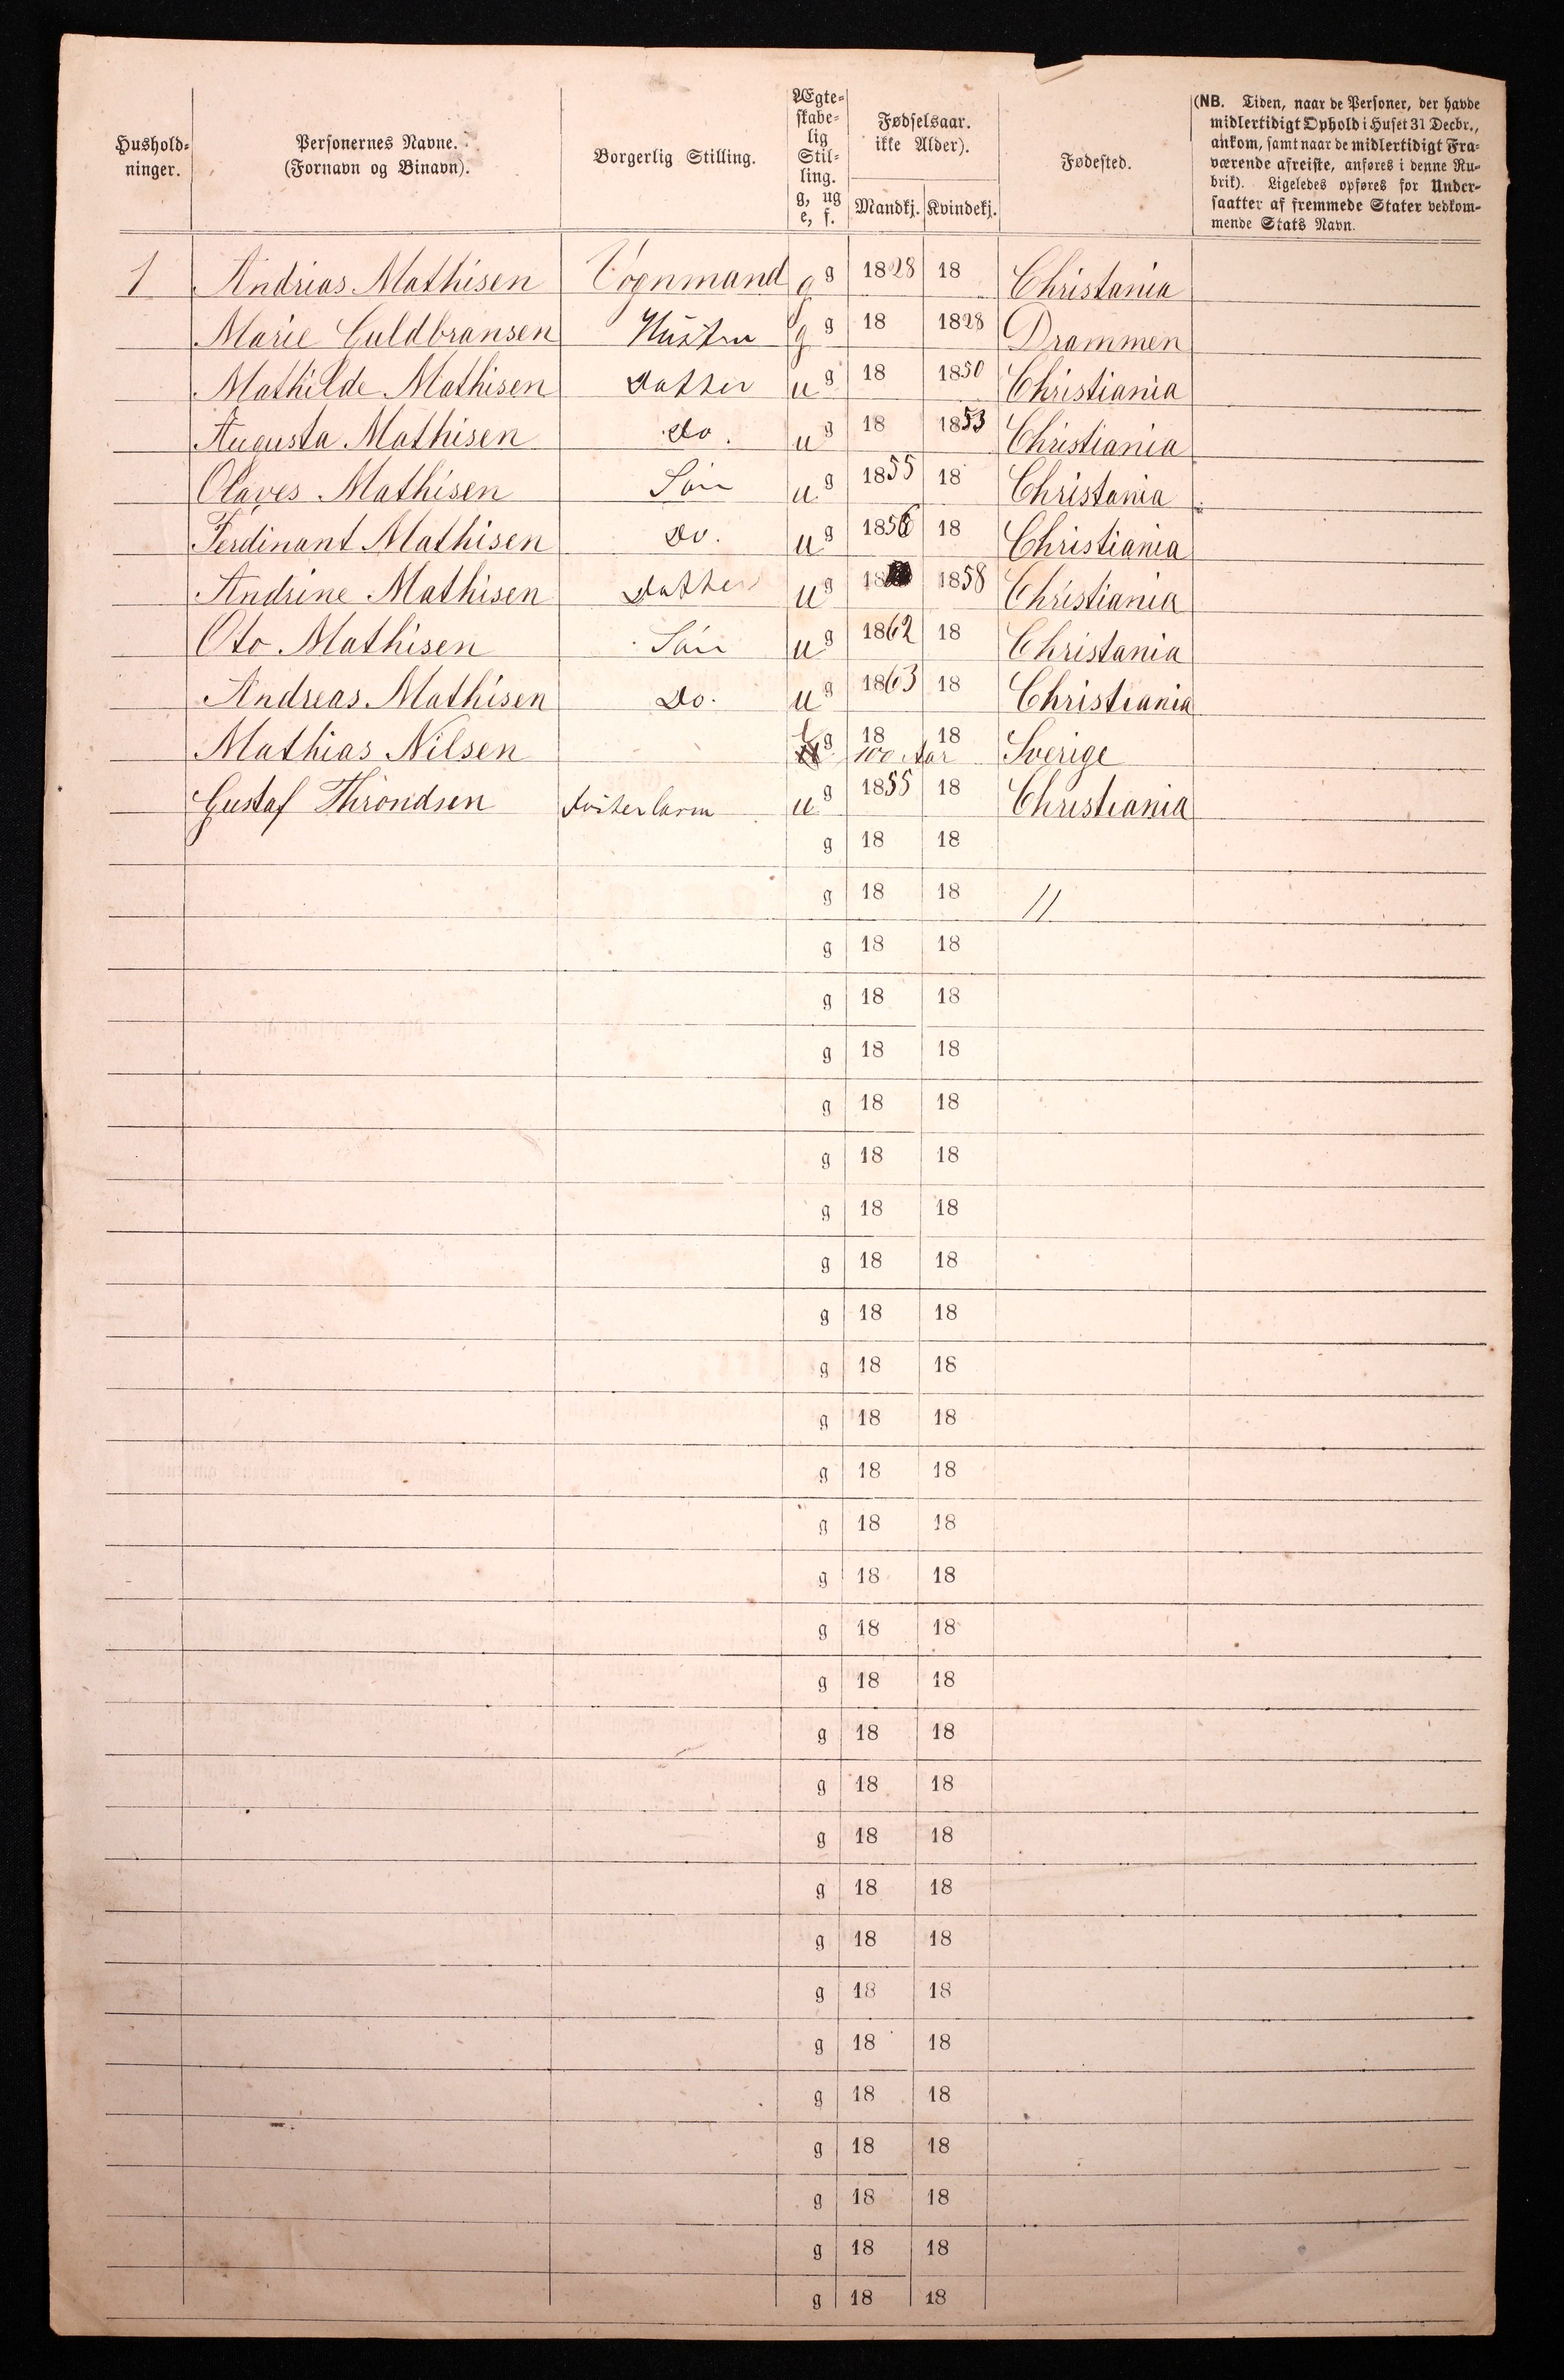 Hushold-
ninger.
Personernes Navne.
(Fornavn og Binavn).
Borgerlig Stilling.
Ægte-
skabe-
lig
Stil-
ling.
g, ug
e, f.
Fødselsaar.
ikke Alder).
Mandkj. Kvindekj.
Fødested.
(NB. Tiden, naar de Personer, der havde
midlertidigt Ophold i Huset 31 Decbr.,
ankom, samt naar de midlertidigt Fra-
værende afreiste, anføres i denne Ru-
brik). Ligeledes opføres for Under-
saatter af fremmede Stater vedkom-
mende Stats Navn.
1 Andrias Mathisen Vognmand g g 1828 18 Christania
Marie Guldbransen Hustru g g 18 1828 Drammen
Mathilde Mathisen Datter u g 18 1850 Christiania
Augusta Mathisen do. u g 18 1853 Christiania
Olaves Mathisen Sön u g 1855 18 Christania
Ferdinant Mathisen Do. u g 1856 18 Christiania
Andrine Mathisen Datter u g 18 1858 Christiania
Oto Mathisen Sön u g 1862 18 Christania
Andreas Mathisen Do. u g 1863 18 Christiania
Mathias Nilsen g 18 18 100 Aar Sverige
Gustaf Throndsen Fosterbarn u g 1855 18 Christiania
g 18 18
g 18 18 11
g 18 18
g 18 18
g 18 18
g 18 18
g 18 18
g 18 18
g 18 18
g 18 18
g 18 18
g 18 18
g 18 18
g 18 18
g 18 18
g 18 18
g 18 18
g 18 18
g 18 18
g 18 18
g 18 18
g 18 18
g 18 18
g 18 18
g 18 18
g 18 18
g 18 18
g 18 18
g 18 18